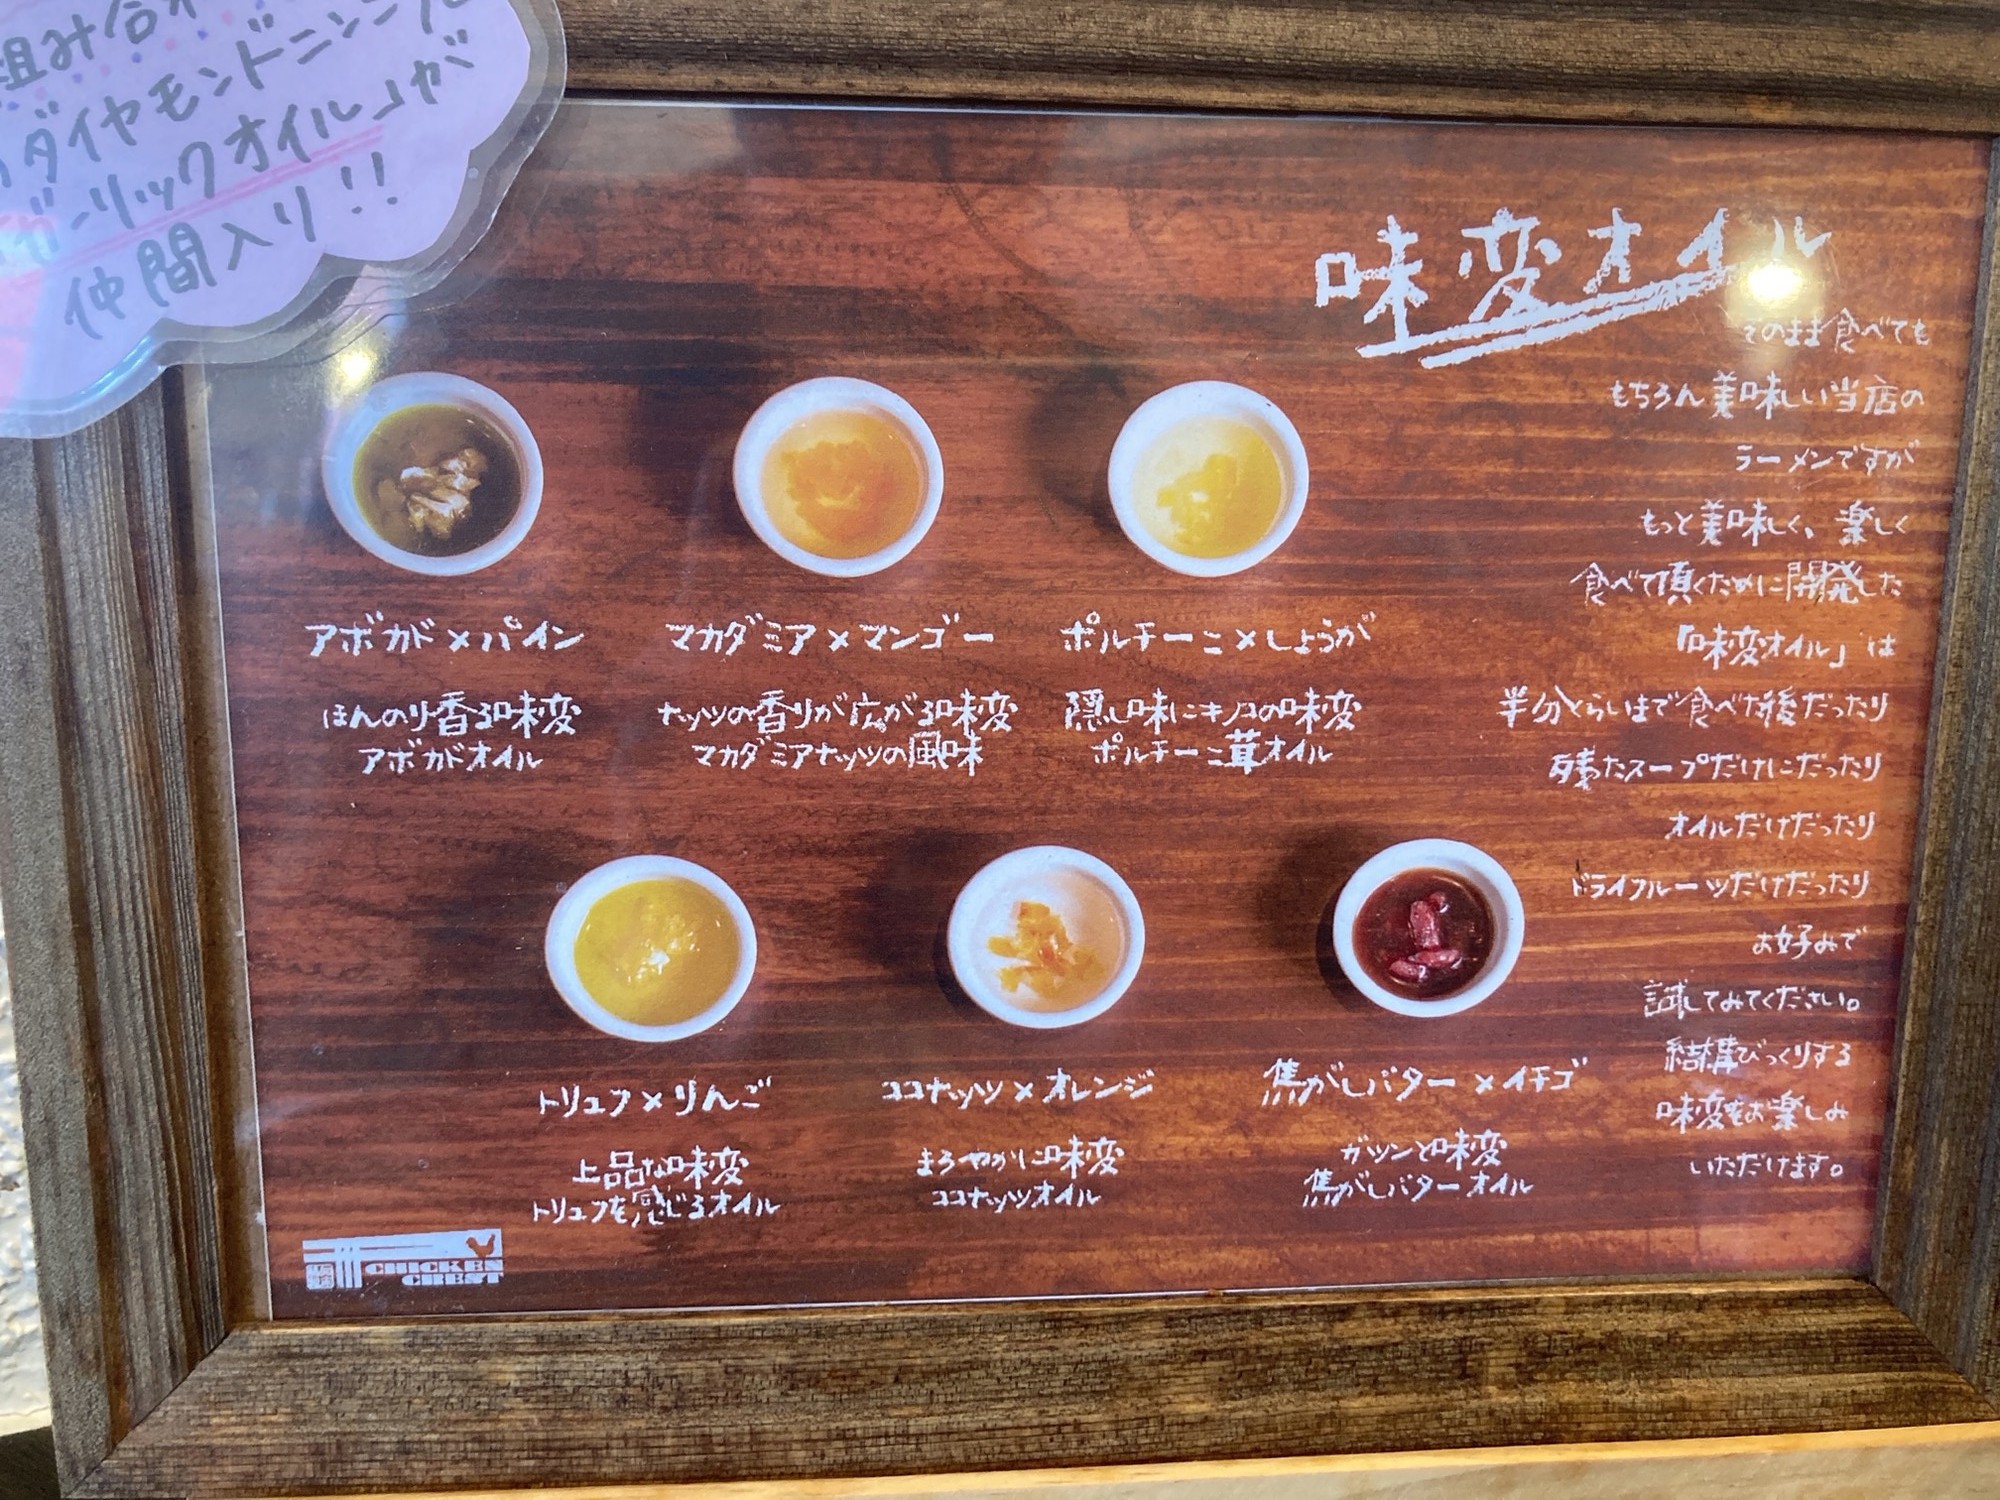 組み合わ
ダイヤモンドニンニク
ガーリックオイル」が
仲間入り!!
味変オイル
そのまま食べても
もちろん美味しい当店の
ラーメンですが
もっと美味しく、楽しく
食べて頂くために開発した
「味変オイル」は
半分くらいまで食べた後だったり
残ったスープだけにだったり
オイルだけだったり
ドライフルーツだけだったり
お好みで
試してみてください。
結構びっくりする
味変をお楽しみ
いただけます。
アボカド×パイン
ほんのり香る味変
アボカドオイル
マカダミア×マンゴー
ナッツの香りが広がる味変
マカダミアナッツの風味
ポルチーニ×しょうが
隠し味にキノコの味変
ポルチーニ茸オイル
トリュフ×りんご
上品な味変
トリュフを感じるオイル
ココナッツ×オレンジ
まろやかに味変
ココナッツオイル
焦がしバター×イチゴ
ガツンと味変
焦がしバターオイル
CHICKEN
CREST